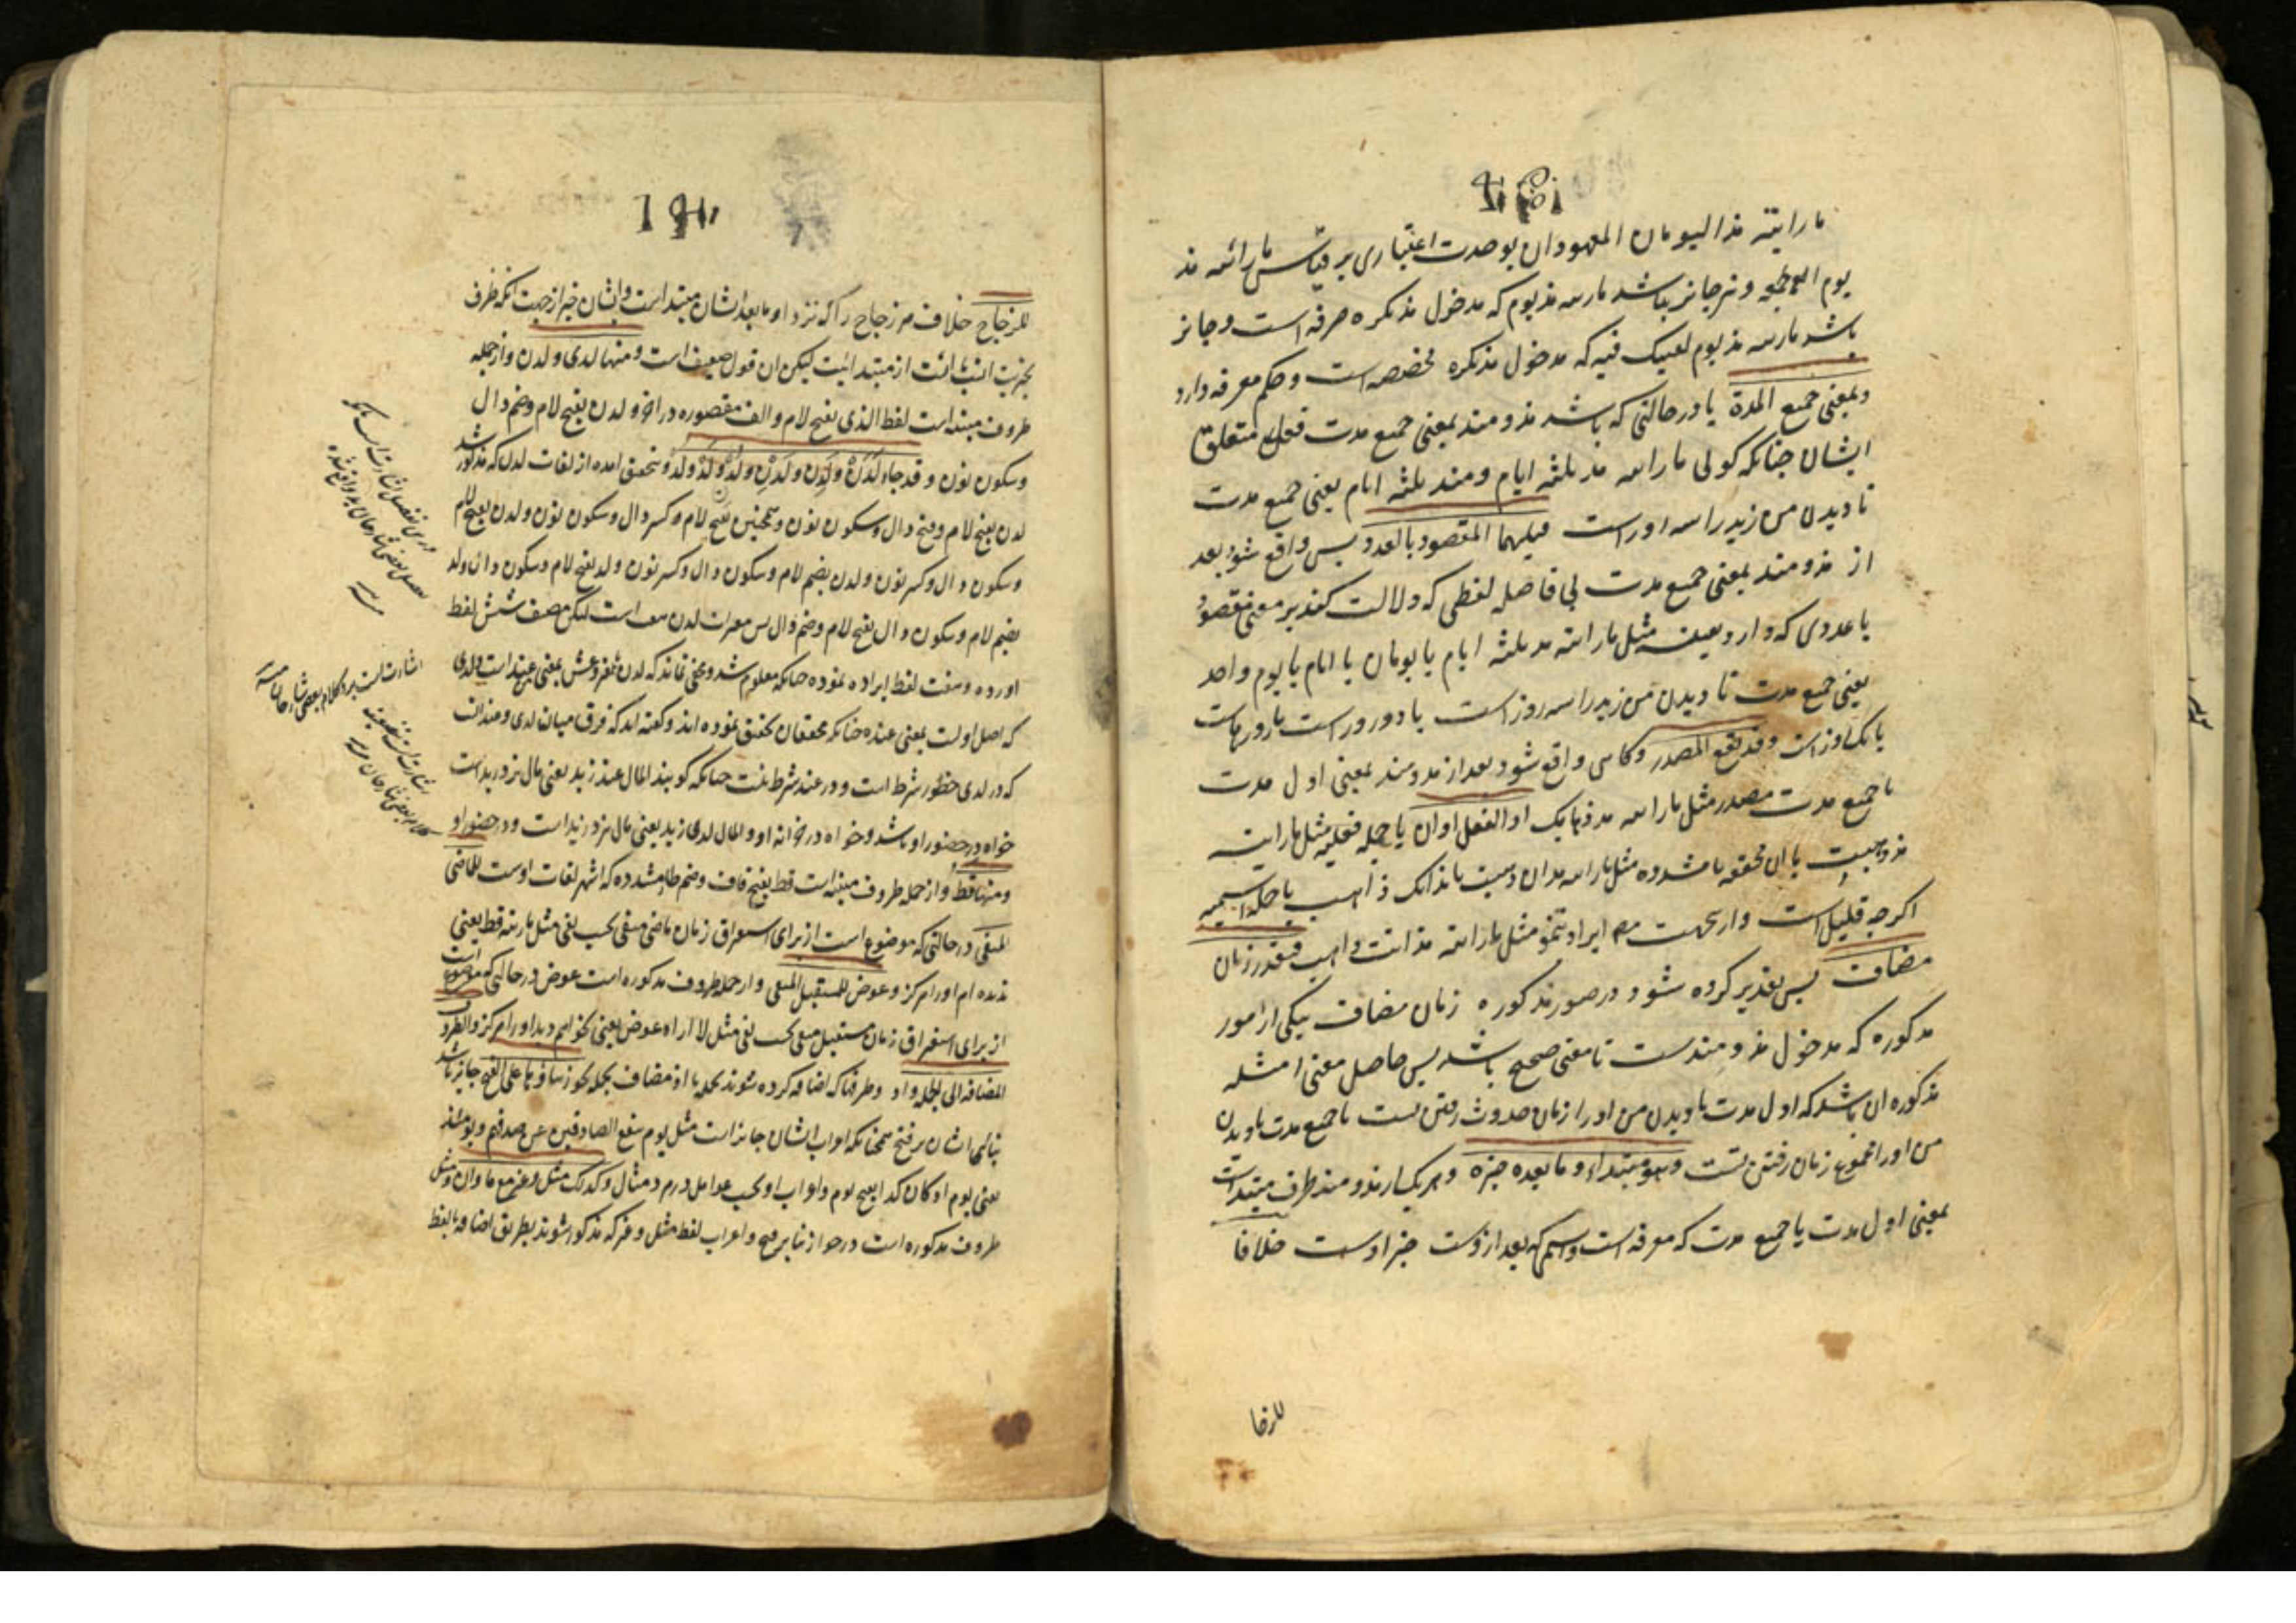 ما رایته مذ الیومان المعهودان بوحدت اعتباری بر قیاس ما رائته مذ
یوم الجمعه و نیز جائز نباشد ما رایته مذ یوم که مدخول مذ نکره صرفه است و جائز
باشد ما رایته مذ یوم لقیتک فیه که مدخول مذ نکره مخصصه است و حکم معرفه دارد
و بمعنی جمیع المدة یا در حالتی که باشد مذ و منذ بمعنی جمیع مدت فعل متعلق
ایشان چنانکه کوئی ما رایته مذ ثلثه ایام و منذ ثلثه ایام یعنی جمیع مدت
نا دیدن من زید را سه روز است فیلیهما المقصود بالعدد پس واقع شود بعد
از مذ و منذ بمعنی جمیع مدت بی فاصله لفظی که دلالت کند بر معنی مقصود
با عددی که دارد مثل ما رایته مذ ثلثه ایام یا یومان یا ایام یا یوم واحد
یعنی جمیع مدت نا دیدن من زید را سه روز است یا دو روز است یا روزهاست
یا یک روز است و قد یقع المصدر و کاهی واقع شود بعد از مذ و منذ بمعنی اول مدت
یا جمیع مدت مصدر مثل ما رایته مذ ذهابک او الفعل او ان یا جمله فعلیه مثل ما رایته
مذ ذهبت یا ان مخففه یا مشدده مثل ما رایته مذ ان ذهبت یا مذ انک ذاهب یا جمله اسمیه
اکرچه قلیل است و ازینجهت مص ایراد ننمود مثل ما رایته مذ انت ذاهب فیقدر زمان
مضاف پس تقدیر کرده شود در صور مذکوره زمان مضاف بیکی از امور
مذکوره که مدخول مذ و منذست تا معنی صحیح باشد پس حاصل معنی امثله
مذکوره ان باشد که اول مدت نا دیدن من او را زمان حدوث رفتن تست یا جمیع مدت نا دیدن
من او را مجموع زمان رفتن تست و هو مبتداء و ما بعده خبره و هر یک از مذ و منذ ظرف مبتداست
بمعنی اول مدت یا جمیع مدت که معرفه است و اسمی که بعد از وست خبر اوست خلافا
للزجاج خلاف مر زجاج را که نزد او ما بعد ایشان مبتداست و ایشان خبر از جهت انکه ظرف
بخبریت انسب است از مبتدائیت لیکن ان قول ضعیف است و منها لدی و لدن و از جمله
ظروف مبنیه است لفظ لدی بفتح لام و الف مقصوره در اخر و لدن بفتح لام و ضم دال
و سکون نون و قد جاء لَدَنْ و لَدِن و لَدْنِ و لُدْنِ و لَدْ و لُدْ و لَدُ و بتحقیق امده از لغات لدن که مذکور شد
لدن بفتح لام و فتح دال و سکون نون و همچنین بفتح لام و کسر دال و سکون نون و لدن بفتح لام
و سکون دال و کسر نون و لدن بضم لام و سکون دال و کسر نون و لد بفتح لام و سکون دال و لد
بضم لام و سکون دال و لد بفتح لام و ضم دال پس مغیرات لدن هفت است لیکن مصنف شش لفظ
اورده و هفت لفظ ایراد نموده چنانکه معلوم شد و مخفی نماند که لدن بمعنی عند است و لدی
که اصل اوست بمعنی عنده چنانکه محققان تحقیق نموده اند و کفته اند که فرق میان لدی و عند انست
که در لدی حضور شرط است و در عند شرط نیست چنانکه کویند المال عند زید یعنی مال نزد زید است
خواه در حضور او باشد و خواه در خزانه او و المال لدی زید یعنی مال نزد زید است و در حضور او
و منها قط و از جمله ظروف مبنیه است قط بفتح قاف و ضم طاء مشدده که اشهر لغات اوست للماضی
المنفی در حالتی که موضوع است از برای استغراق زمان ماضی منفی بحسب نفی مثل ما رایته قط یعنی
ندیده ام او را هرکز و عوض للمستقبل المنفی و از جمله ظروف مذکوره است عوض در حالتی که موضوع است
از برای استغراق زمان مستقبل منفی بحسب نفی مثل لا اراه عوض یعنی نخواهم دید او را هرکز و الظروف
المضافه الی الجمله و اذ و ظرفها که اضافه کرده شوند بجمله یا اذ مضاف بجمله یجوز بناؤها علی الفتح جایز باشد
بنای ایشان بر فتح همچنانکه اعراب ایشان جایز است مثل یوم ینفع الصادقین صدقهم و یومئذ
یعنی یوم اذ کان کذا بفتح یوم و اعراب او بحسب عوامل و کذلک مثل و غیر مع ما و ان و مثل
ظروف مذکوره است در جواز بنا بر فتح و اعراب لفظ مثل و غیر که مذکور شوند بطریق اضافه با لفظ